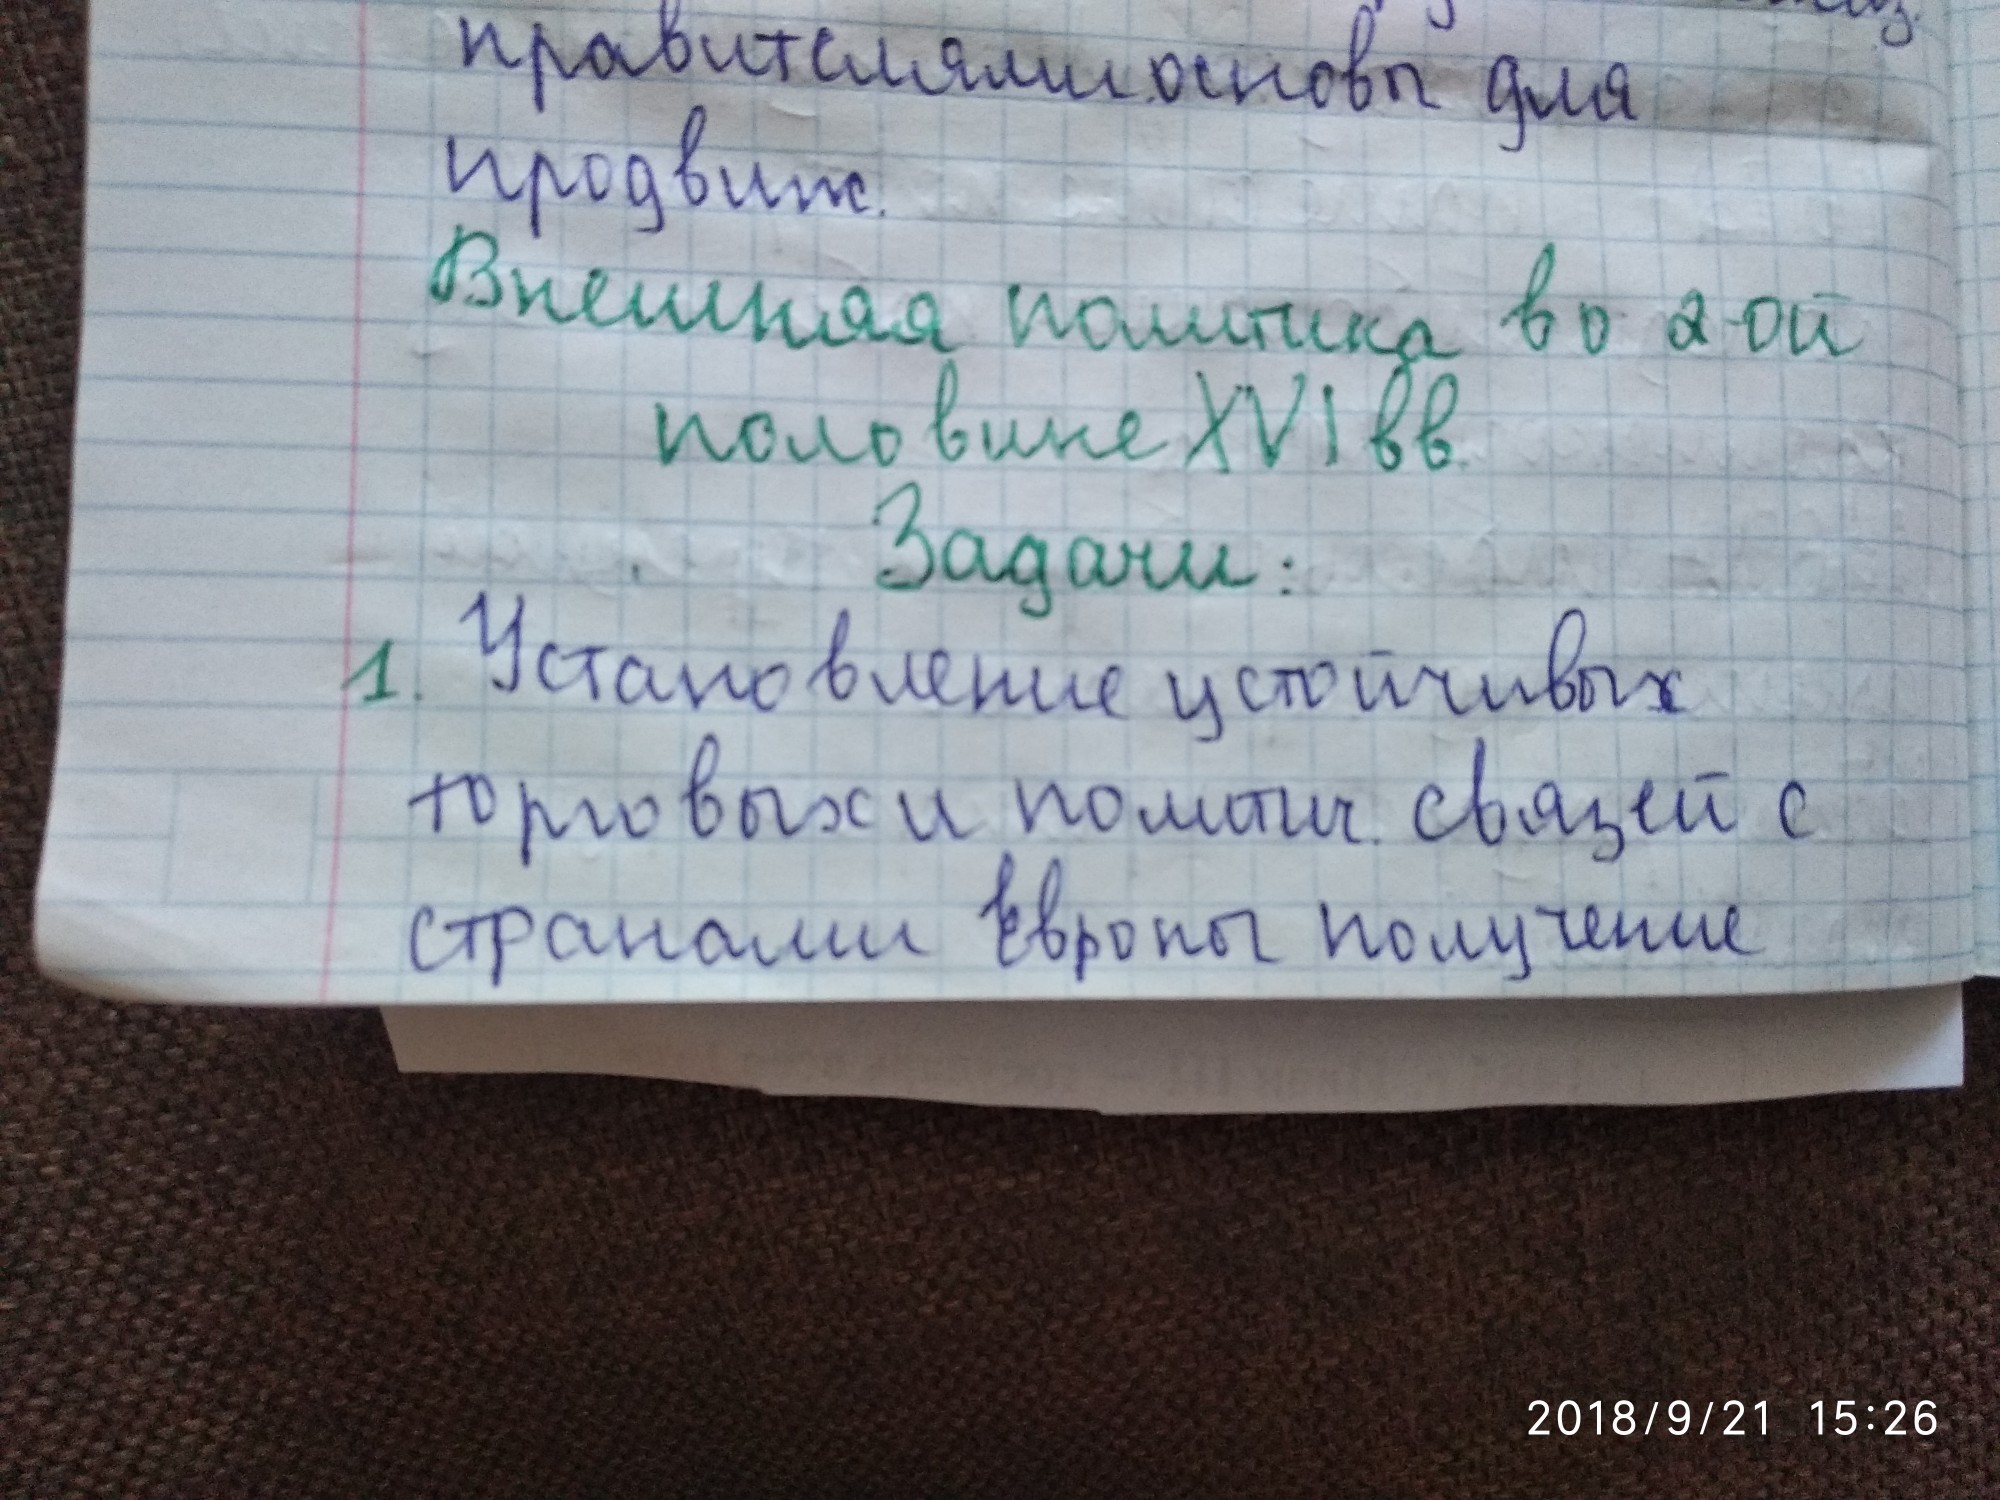 правителями основы для
продвиж.
Внешняя политика во 2-ой
половине XVI вв.
Задачи:
1. Установление устойчивых
торговых и политич. связей с
странами Европы получение
2018/9/21 15:26